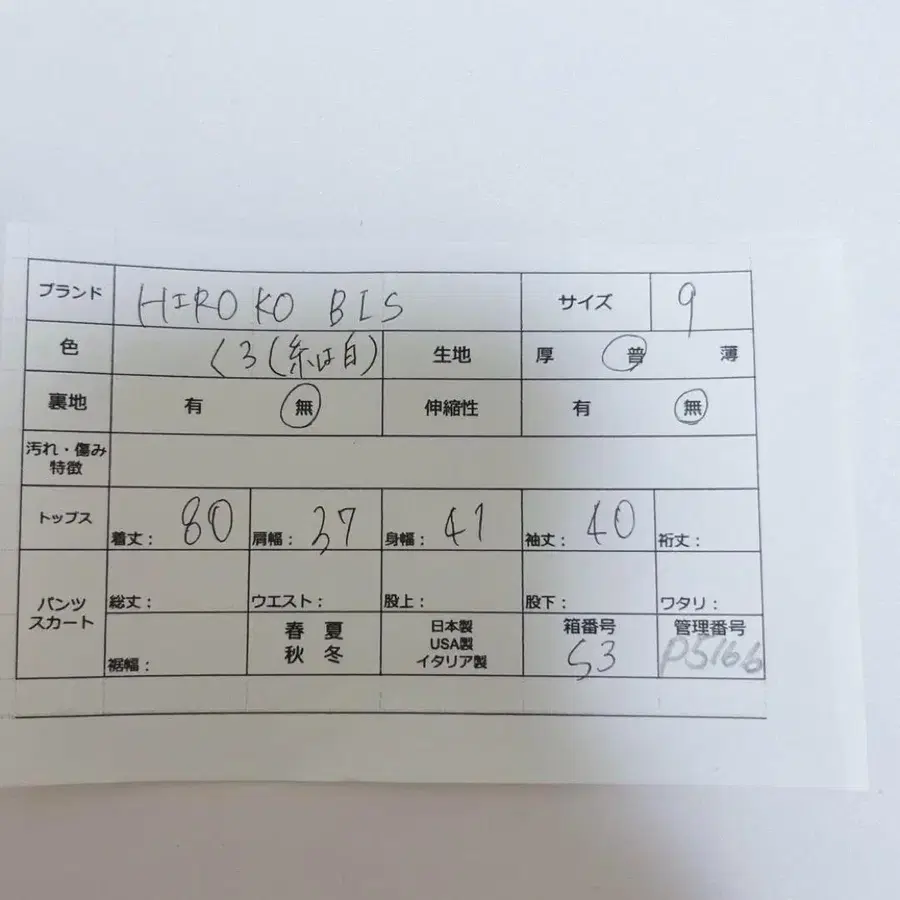 ブランド HIROKO BIS サイズ 9
色 くろ(糸は白) 生地 厚 普 薄
裏地 有 無 伸縮性 有 無
汚れ・傷み
特徴
トップス 着丈: 80 肩幅: 37 身幅: 41 袖丈: 40 裄丈:
パンツ
スカート
総丈: ウエスト: 股上: 股下: ワタリ:
裾幅:
春 夏
秋 冬
日本製
USA製
イタリア製
箱番号
S3
管理番号
P5166